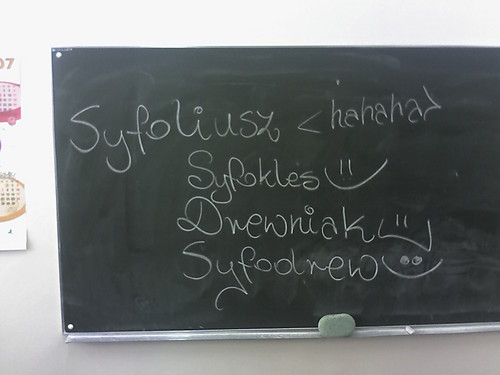 07
Syfoliusz <hahaha>
Syfokles
Drewniak
Syfodrew